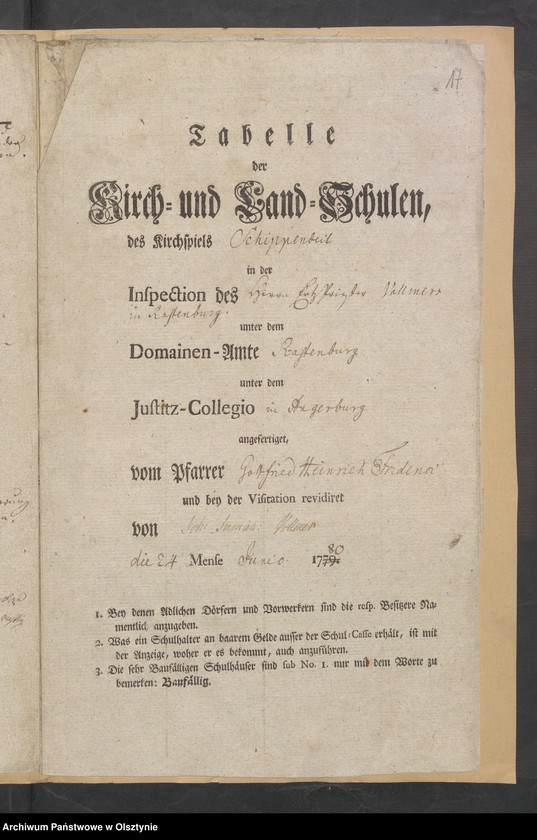 17
Tabelle
der
Kirch- und Land-Schulen,
des Kirchspiels Schippenbeil
in der
Inspection des Herrn Ertz Priester Vollmer
in Rastenburg.
unter dem
Domainen-Amte Rastenburg
unter dem
Justitz-Collegio in Angerburg
angefertiget,
vom Pfarrer Gottfried Heinrich
und bey der Visitation revidiret
von
die 24 Mense Junio 1779. 80
1. Bey denen Adlichen Dörfern und Vorwerkern sind die resp. Besitzere Na-
mentlich anzugeben.
2. Was ein Schulhalter an baarem Gelde ausser der Schul-Casse erhält, ist mit
der Anzeige, woher er es bekommt, auch anzuführen.
3. Die sehr Baufälligen Schulhäuser sind sub No. 1. nur mit dem Worte zu
bemerken: Baufällig.
Archiwum Państwowe w Olsztynie